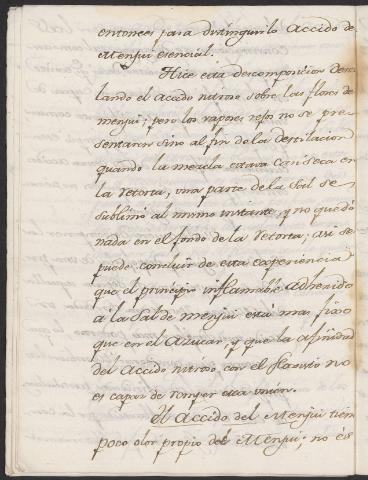 entonces para distinguirlo Accido de
Menjui esencial.
Hice esta descomposicion Desti
lando el Accido nitroso sobre las flores de
menjui; pero los vapores rojos no se pre-
sentaron sino al fin de la destilacion
quando la mezcla estava casi seca en
la Retorta, una parte de la Sal se
sublimó al mismo instante, y no quedó
nada en el fondo de la Retorta; asi se
puede concluir de esta experiencia
que el principio inflamable adherido
à la Sal de menjui está mas fixo
que en el Azucar, y que la afinidad
del Accido nitroso con el flogisto no
es capaz de romper esta union.
El Accido del Menjui tien
poco olor propio del Menjui; no es